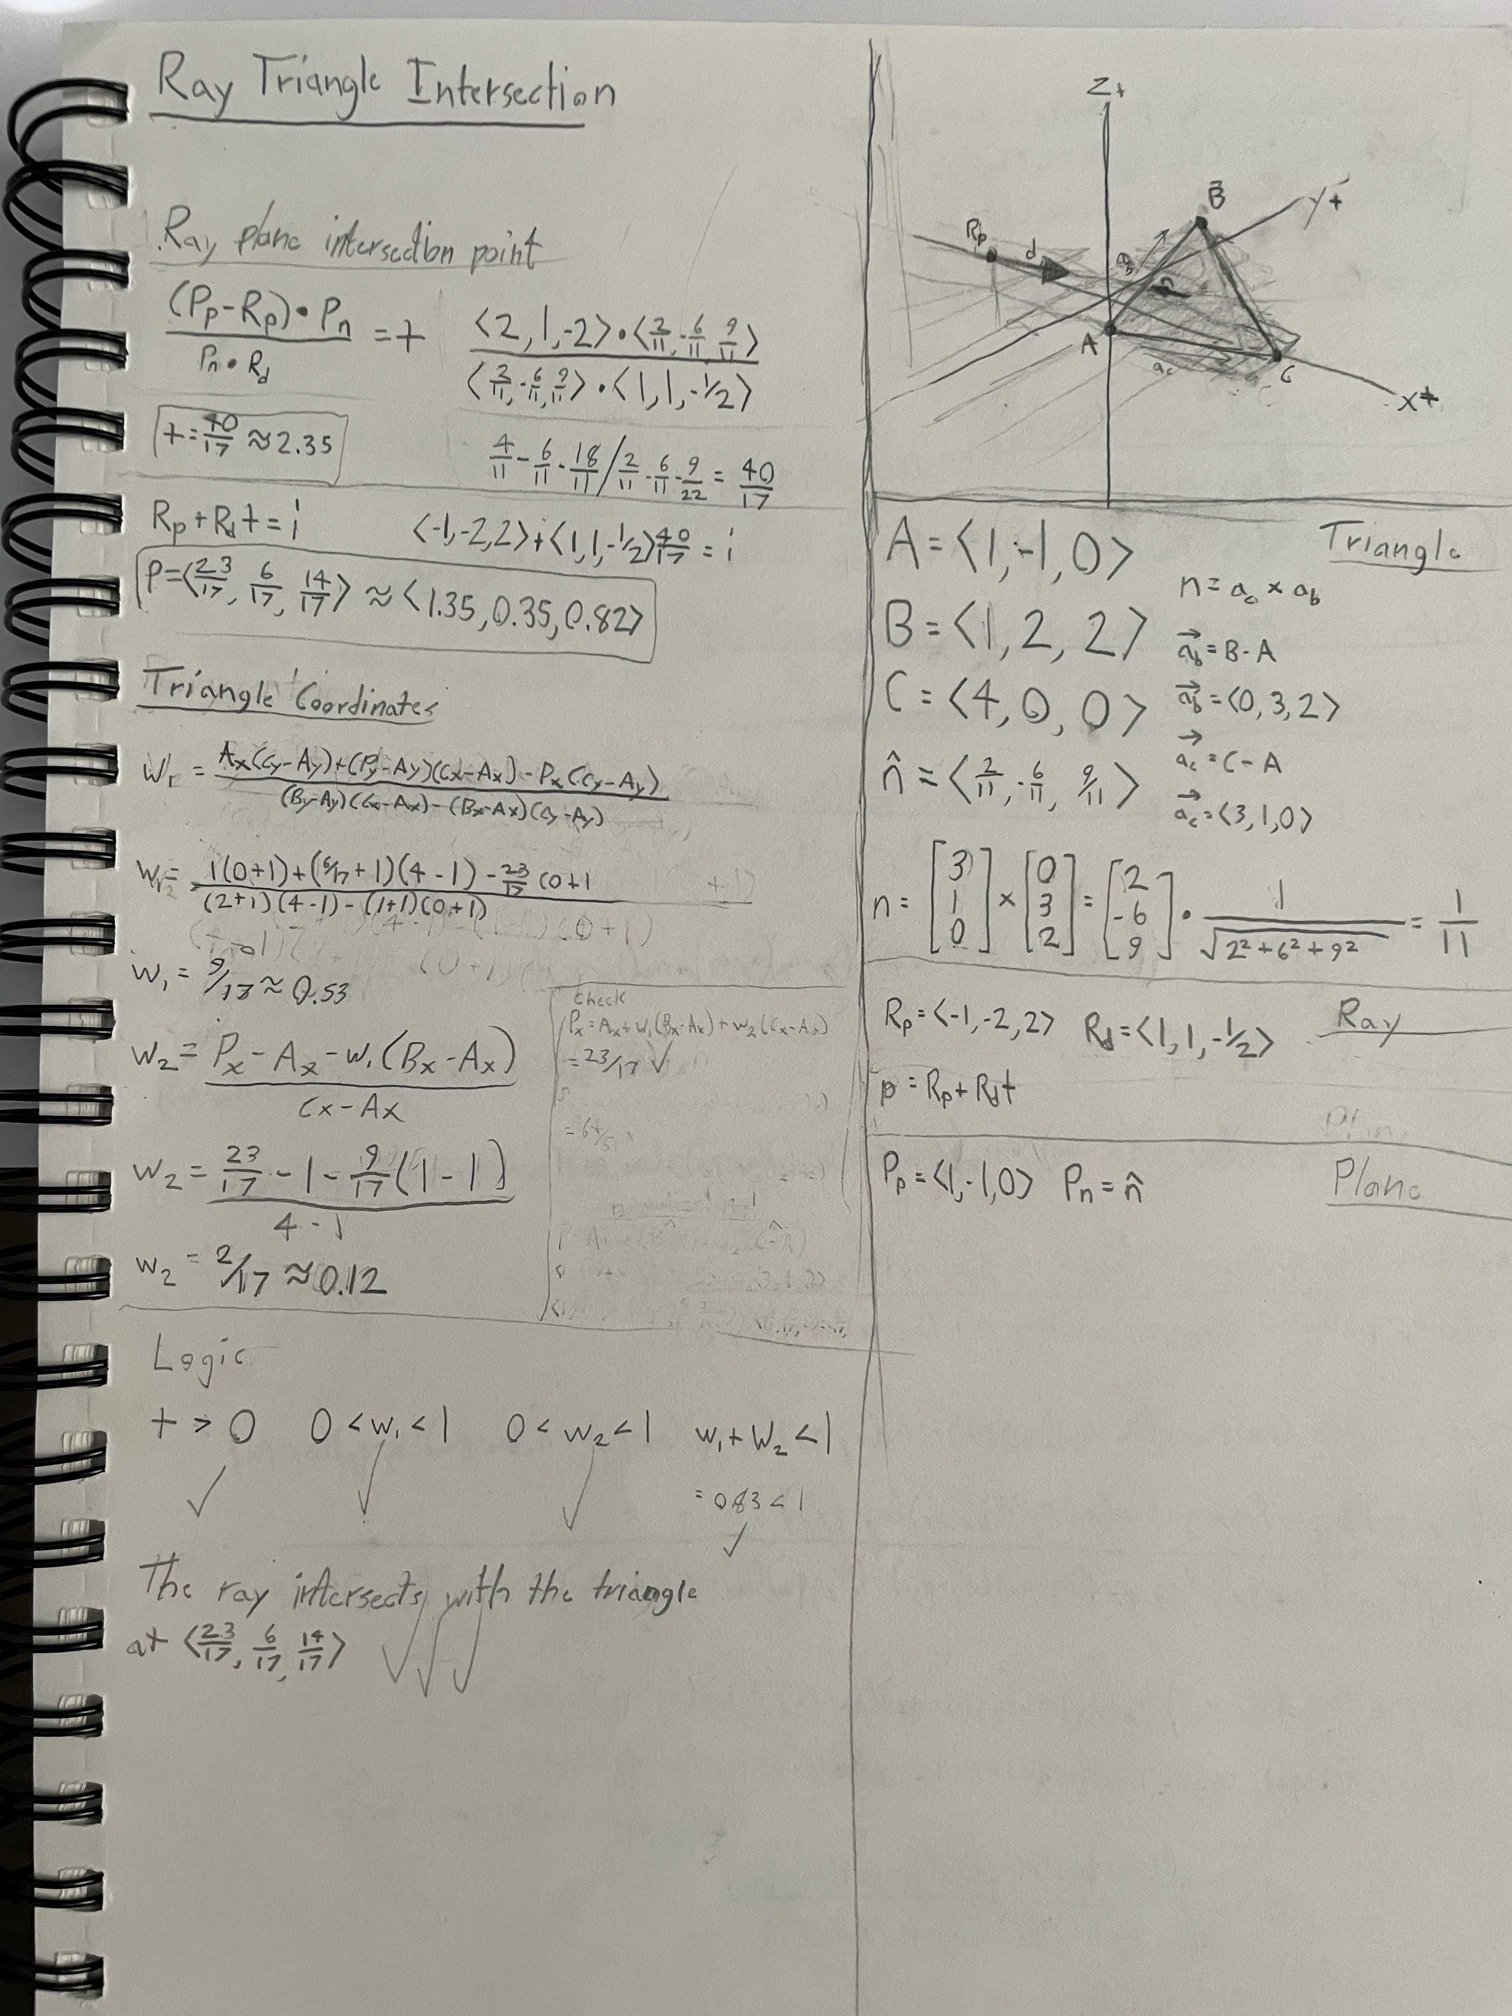 Ray Triangle Intersection
Ray plane intersection point
(Pp-Rp)•Pn / Pn•Rd = t
<2,1,-2>•<2/11,-6/11,9/11> / <2/11,-6/11,9/11>•<1,1,-1/2>
t=40/17≈2.35
4/11-6/11-18/11 / 2/11-6/11-9/22 = 40/17
Rp+Rdt=i
<-1,-2,2>+<1,1,-1/2>40/17=i
P=<23/17, 6/17, 14/17> ≈ <1.35,0.35,0.82>
Triangle Coordinates
W1 = Ax(Cy-Ay)+(Py-Ay)(Cx-Ax)-Px(Cy-Ay) / (By-Ay)(Cx-Ax)-(Bx-Ax)(Cy-Ay)
W1= 1(0+1)+(6/17+1)(4-1)-23/17(0+1 / (2+1)(4-1)-(1+1)(0+1)
W1 = 9/17≈0.53
W2= Px-Ax-W1(Bx-Ax) / Cx-Ax
W2= 23/17-1-9/17(1-1) / 4-1
W2 = 2/17≈0.12
Check
Px=Ax+W1(Bx-Ax)+W2(Cx-Ax)
=23/17 ✓
Logic
t > 0 0<W1<1 0<W2<1 W1+W2<1
✓ ✓ ✓ = 0.63<1
✓
The ray intersects with the triangle
at <23/17, 6/17, 14/17> ✓✓✓
Z+
B
y+
Rp
d
ab
n
A
ac
C
x+
A=<1,-1,0>
Triangle
B=<1,2,2>
C=<4,0,0>
n̂=<2/11,-6/11,9/11>
n=ac×ab
ab=B-A
ab=<0,3,2>
ac=C-A
ac=<3,1,0>
n=[3 1 0]×[0 3 2]=[2 -6 9]•1/√2²+6²+9²=1/11
Rp=<-1,-2,2> Rd=<1,1,-1/2>
Ray
p=Rp+Rdt
Pp=<1,-1,0> Pn=n̂
Plane